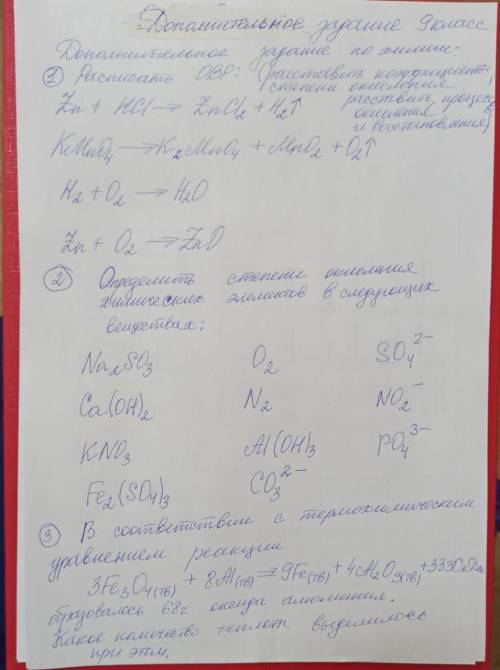 Дополнительное задание 9 класс
Дополнительное задание по химии:
① Расписать ОВР: (расставить коэффициент
степени окисления
Zn + HCl → ZnCl₂ + H₂↑ расставить, процесс
окисления
и восстановления)
KMnO₄ → K₂MnO₄ + MnO₂ + O₂↑
H₂ + O₂ → H₂O
Zn + O₂ → ZnO
② Определить степени окисления
химических элементов в следующих
веществах:
Na₂SO₃ O₂ SO₄²⁻
Ca(OH)₂ N₂ NO₂⁻
KNO₃ Al(OH)₃ PO₄³⁻
Fe₂(SO₄)₃ CO₃²⁻
③ В соответствии с термохимическим
уравнением реакции
3Fe₃O₄(тв) + 8Al(тв) = 9Fe(тв) + 4Al₂O₃(тв) + 3330кДж
образовалось 68г оксида алюминия.
Какое количество теплоты выделилось
при этом.